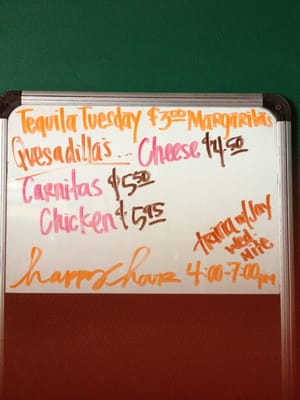 Tequila Tuesday $3.00 Margaritas
Quesadillas... Cheese $4.50
Carnitas $5.50
Chicken $5.95
trivia w/Jay
Wed.
Nite
happy hour 4:00-7:00pm